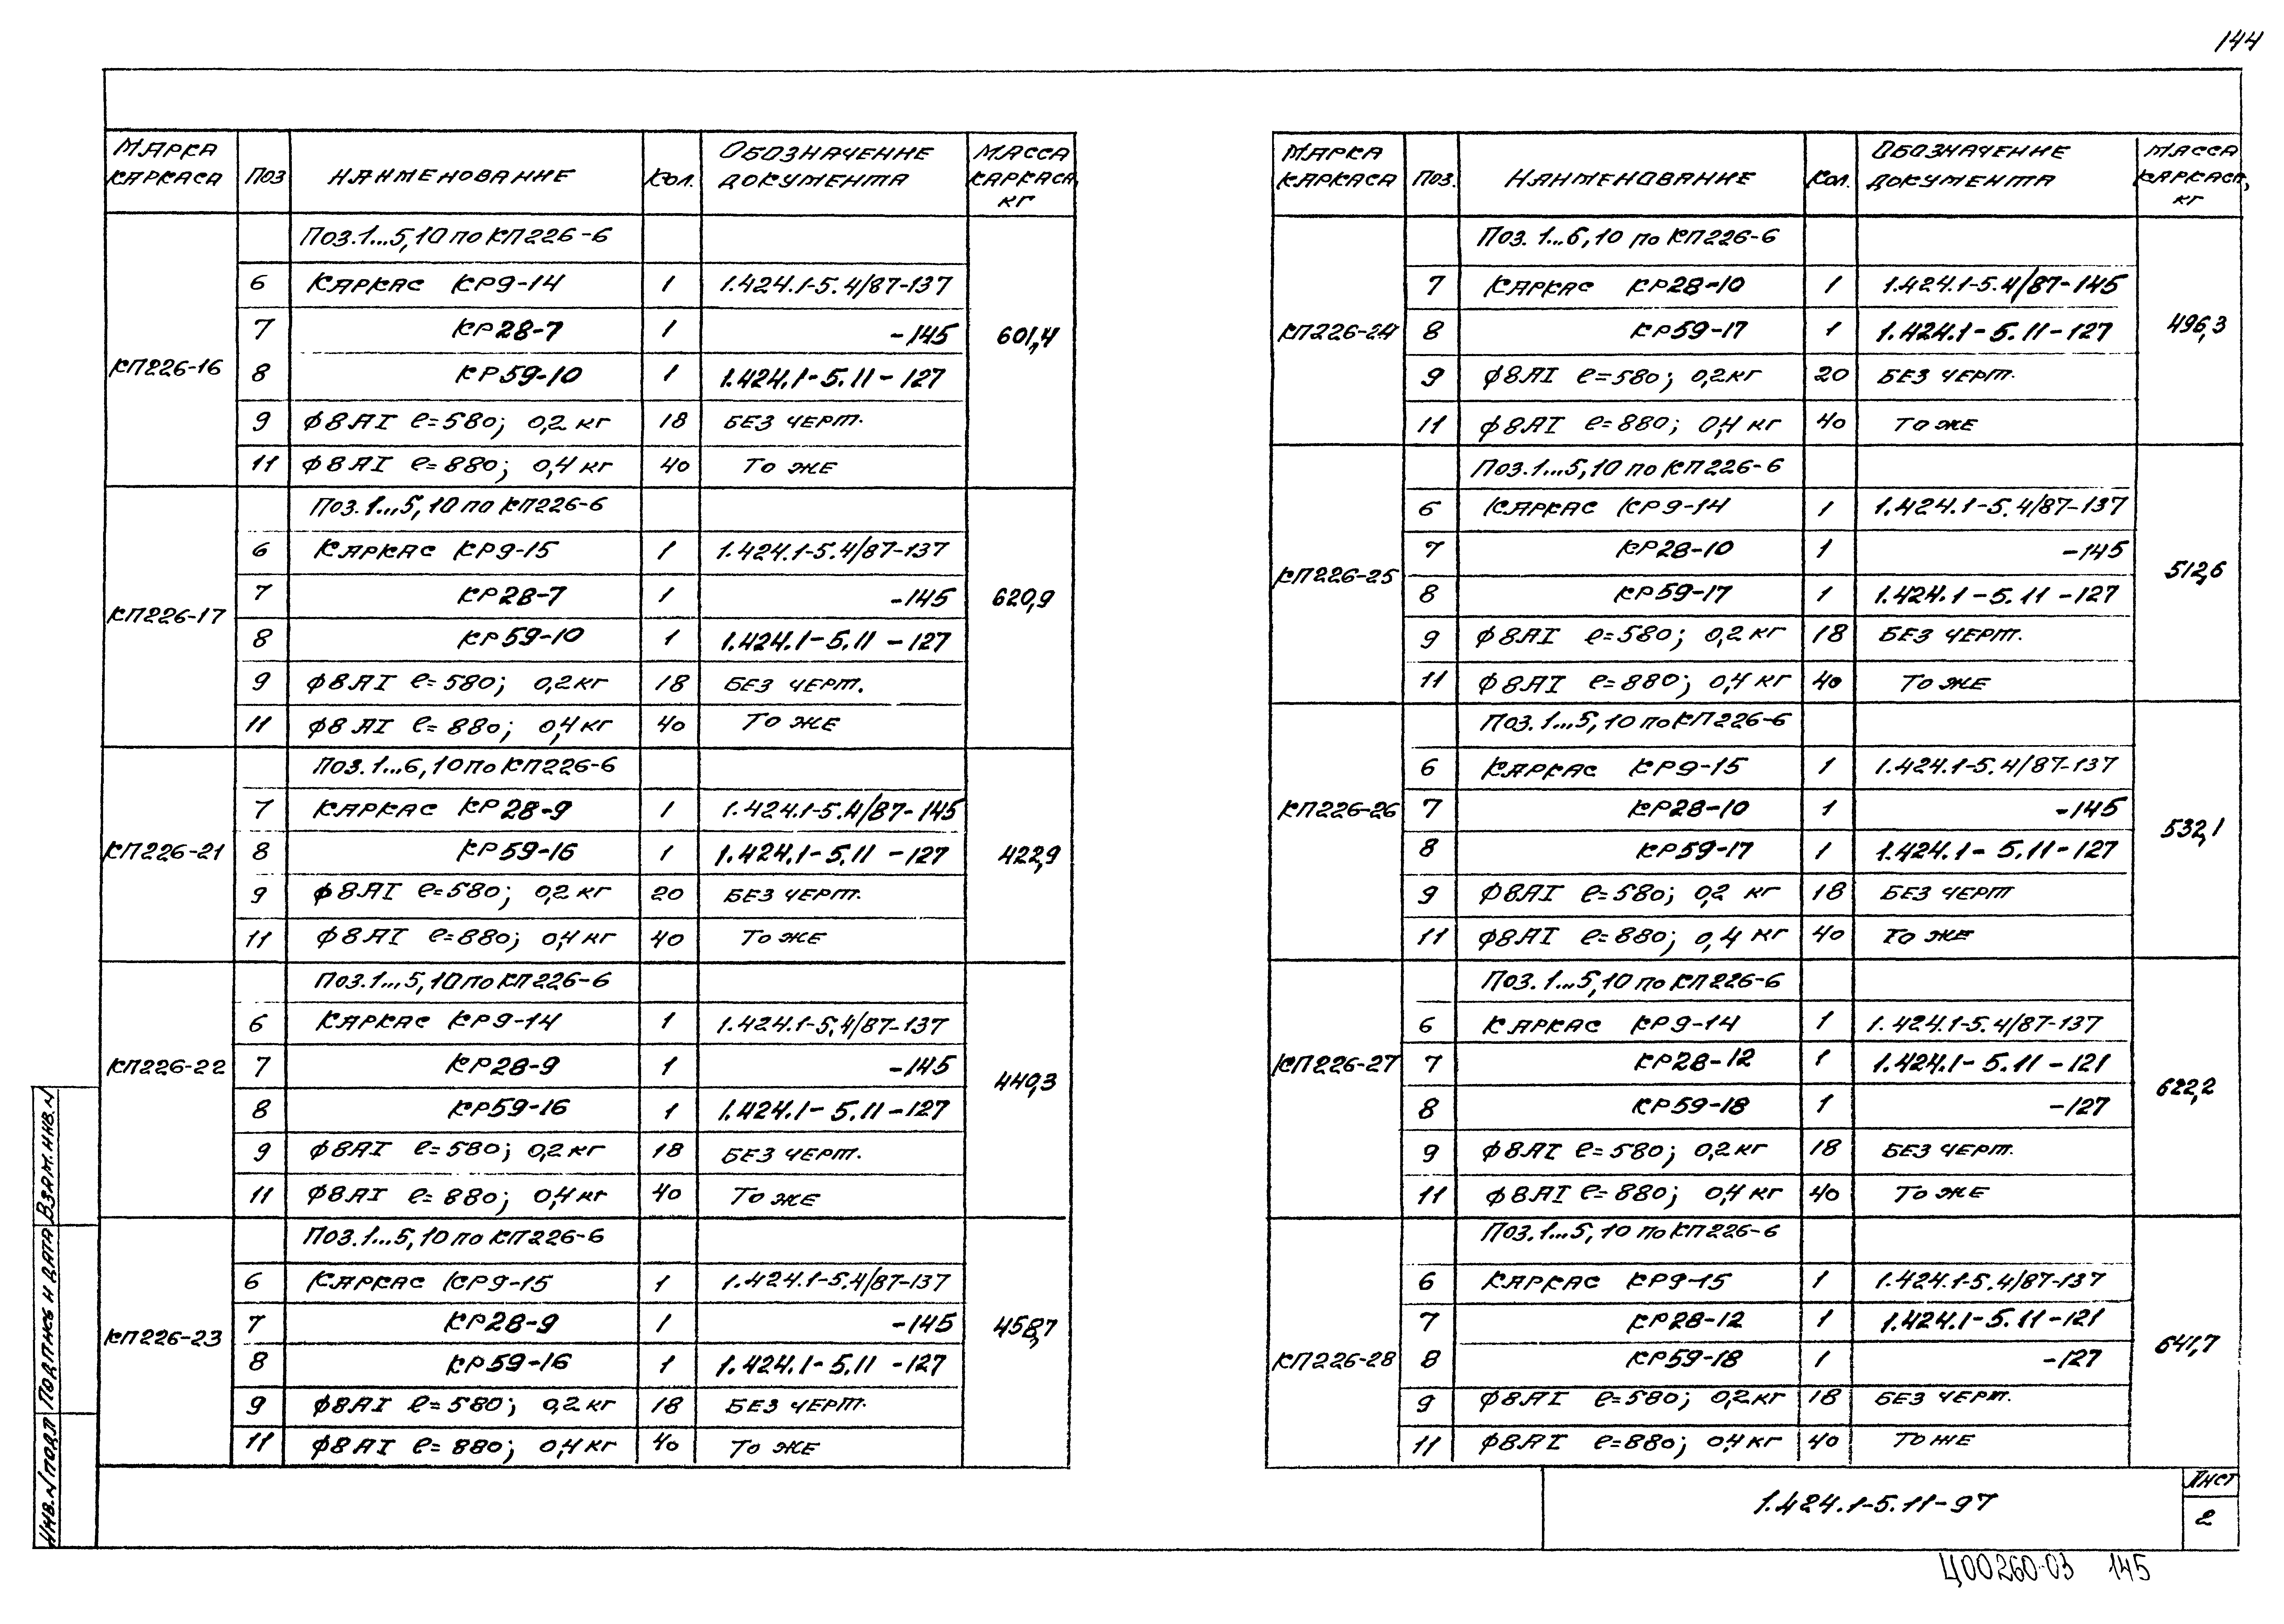 144
Марка каркаса Поз Наименование Кол. Обозначение документа Масса каркаса, кг
КП226-16 601,4
Поз.1...5,10 по КП226-6
6 Каркас КР9-14 1 1.424.1-5.4/87-137
7 КР28-7 1 -145
8 КР59-10 1 1.424.1-5.11-127
9 ф8АI ℓ=580; 0,2 кг 18 без черт.
11 ф8АI ℓ=880; 0,4 кг 40 То же
КП226-17 620,9
Поз.1...5,10 по КП226-6
6 Каркас КР9-15 1 1.424.1-5.4/87-137
7 КР28-7 1 -145
8 КР59-10 1 1.424.1-5.11-127
9 ф8АI ℓ=580; 0,2 кг 18 без черт.
11 ф8АI ℓ=880; 0,4 кг 40 То же
КП226-21 422,9
Поз.1...6,10 по КП226-6
7 Каркас КР28-9 1 1.424.1-5.4/87-145
8 КР59-16 1 1.424.1-5.11-127
9 ф8АI ℓ=580; 0,2 кг 20 без черт.
11 ф8АI ℓ=880; 0,4 кг 40 То же
КП226-22 440,3
Поз.1...5,10 по КП226-6
6 Каркас КР9-14 1 1.424.1-5.4/87-137
7 КР28-9 1 -145
8 КР59-16 1 1.424.1-5.11-127
9 ф8АI ℓ=580; 0,2 кг 18 без черт.
11 ф8АI ℓ=880; 0,4 кг 40 То же
КП226-23 458,7
Поз.1...5,10 по КП226-6
6 Каркас КР9-15 1 1.424.1-5.4/87-137
7 КР28-9 1 -145
8 КР59-16 1 1.424.1-5.11-127
9 ф8АI ℓ=580; 0,2 кг 18 без черт.
11 ф8АI ℓ=880; 0,4 кг 40 То же
Марка каркаса Поз. Наименование Кол. Обозначение документа Масса каркаса, кг
КП226-24 496,3
Поз.1...6,10 по КП226-6
7 Каркас КР28-10 1 1.424.1-5.4/87-145
8 КР59-17 1 1.424.1-5.11-127
9 ф8АI ℓ=580; 0,2 кг 20 без черт.
11 ф8АI ℓ=880; 0,4 кг 40 То же
КП226-25 512,6
Поз.1...5,10 по КП226-6
6 Каркас КР9-14 1 1.424.1-5.4/87-137
7 КР28-10 1 -145
8 КР59-17 1 1.424.1-5.11-127
9 ф8АI ℓ=580; 0,2 кг 18 без черт.
11 ф8АI ℓ=880; 0,4 кг 40 То же
КП226-26 532,1
Поз.1...5,10 по КП226-6
6 Каркас КР9-15 1 1.424.1-5.4/87-137
7 КР28-10 1 -145
8 КР59-17 1 1.424.1-5.11-127
9 ф8АI ℓ=580; 0,2 кг 18 без черт
11 ф8АI ℓ=880; 0,4 кг 40 То же
КП226-27 622,2
Поз.1...5,10 по КП226-6
6 Каркас КР9-14 1 1.424.1-5.4/87-137
7 КР28-12 1 1.424.1-5.11-121
8 КР59-18 1 -127
9 ф8АI ℓ=580; 0,2 кг 18 без черт.
11 ф8АI ℓ=880; 0,4 кг 40 То же
КП226-28 641,7
Поз.1...5,10 по КП226-6
6 Каркас КР9-15 1 1.424.1-5.4/87-137
7 КР28-12 1 1.424.1-5.11-121
8 КР59-18 1 -127
9 ф8АI ℓ=580; 0,2 кг 18 без черт.
11 ф8АI ℓ=880; 0,4 кг 40 То же
Инв. N подл Подпись и дата Взам. инв. N
1.424.1-5.11-97
Лист
2
Ц00260-03 145